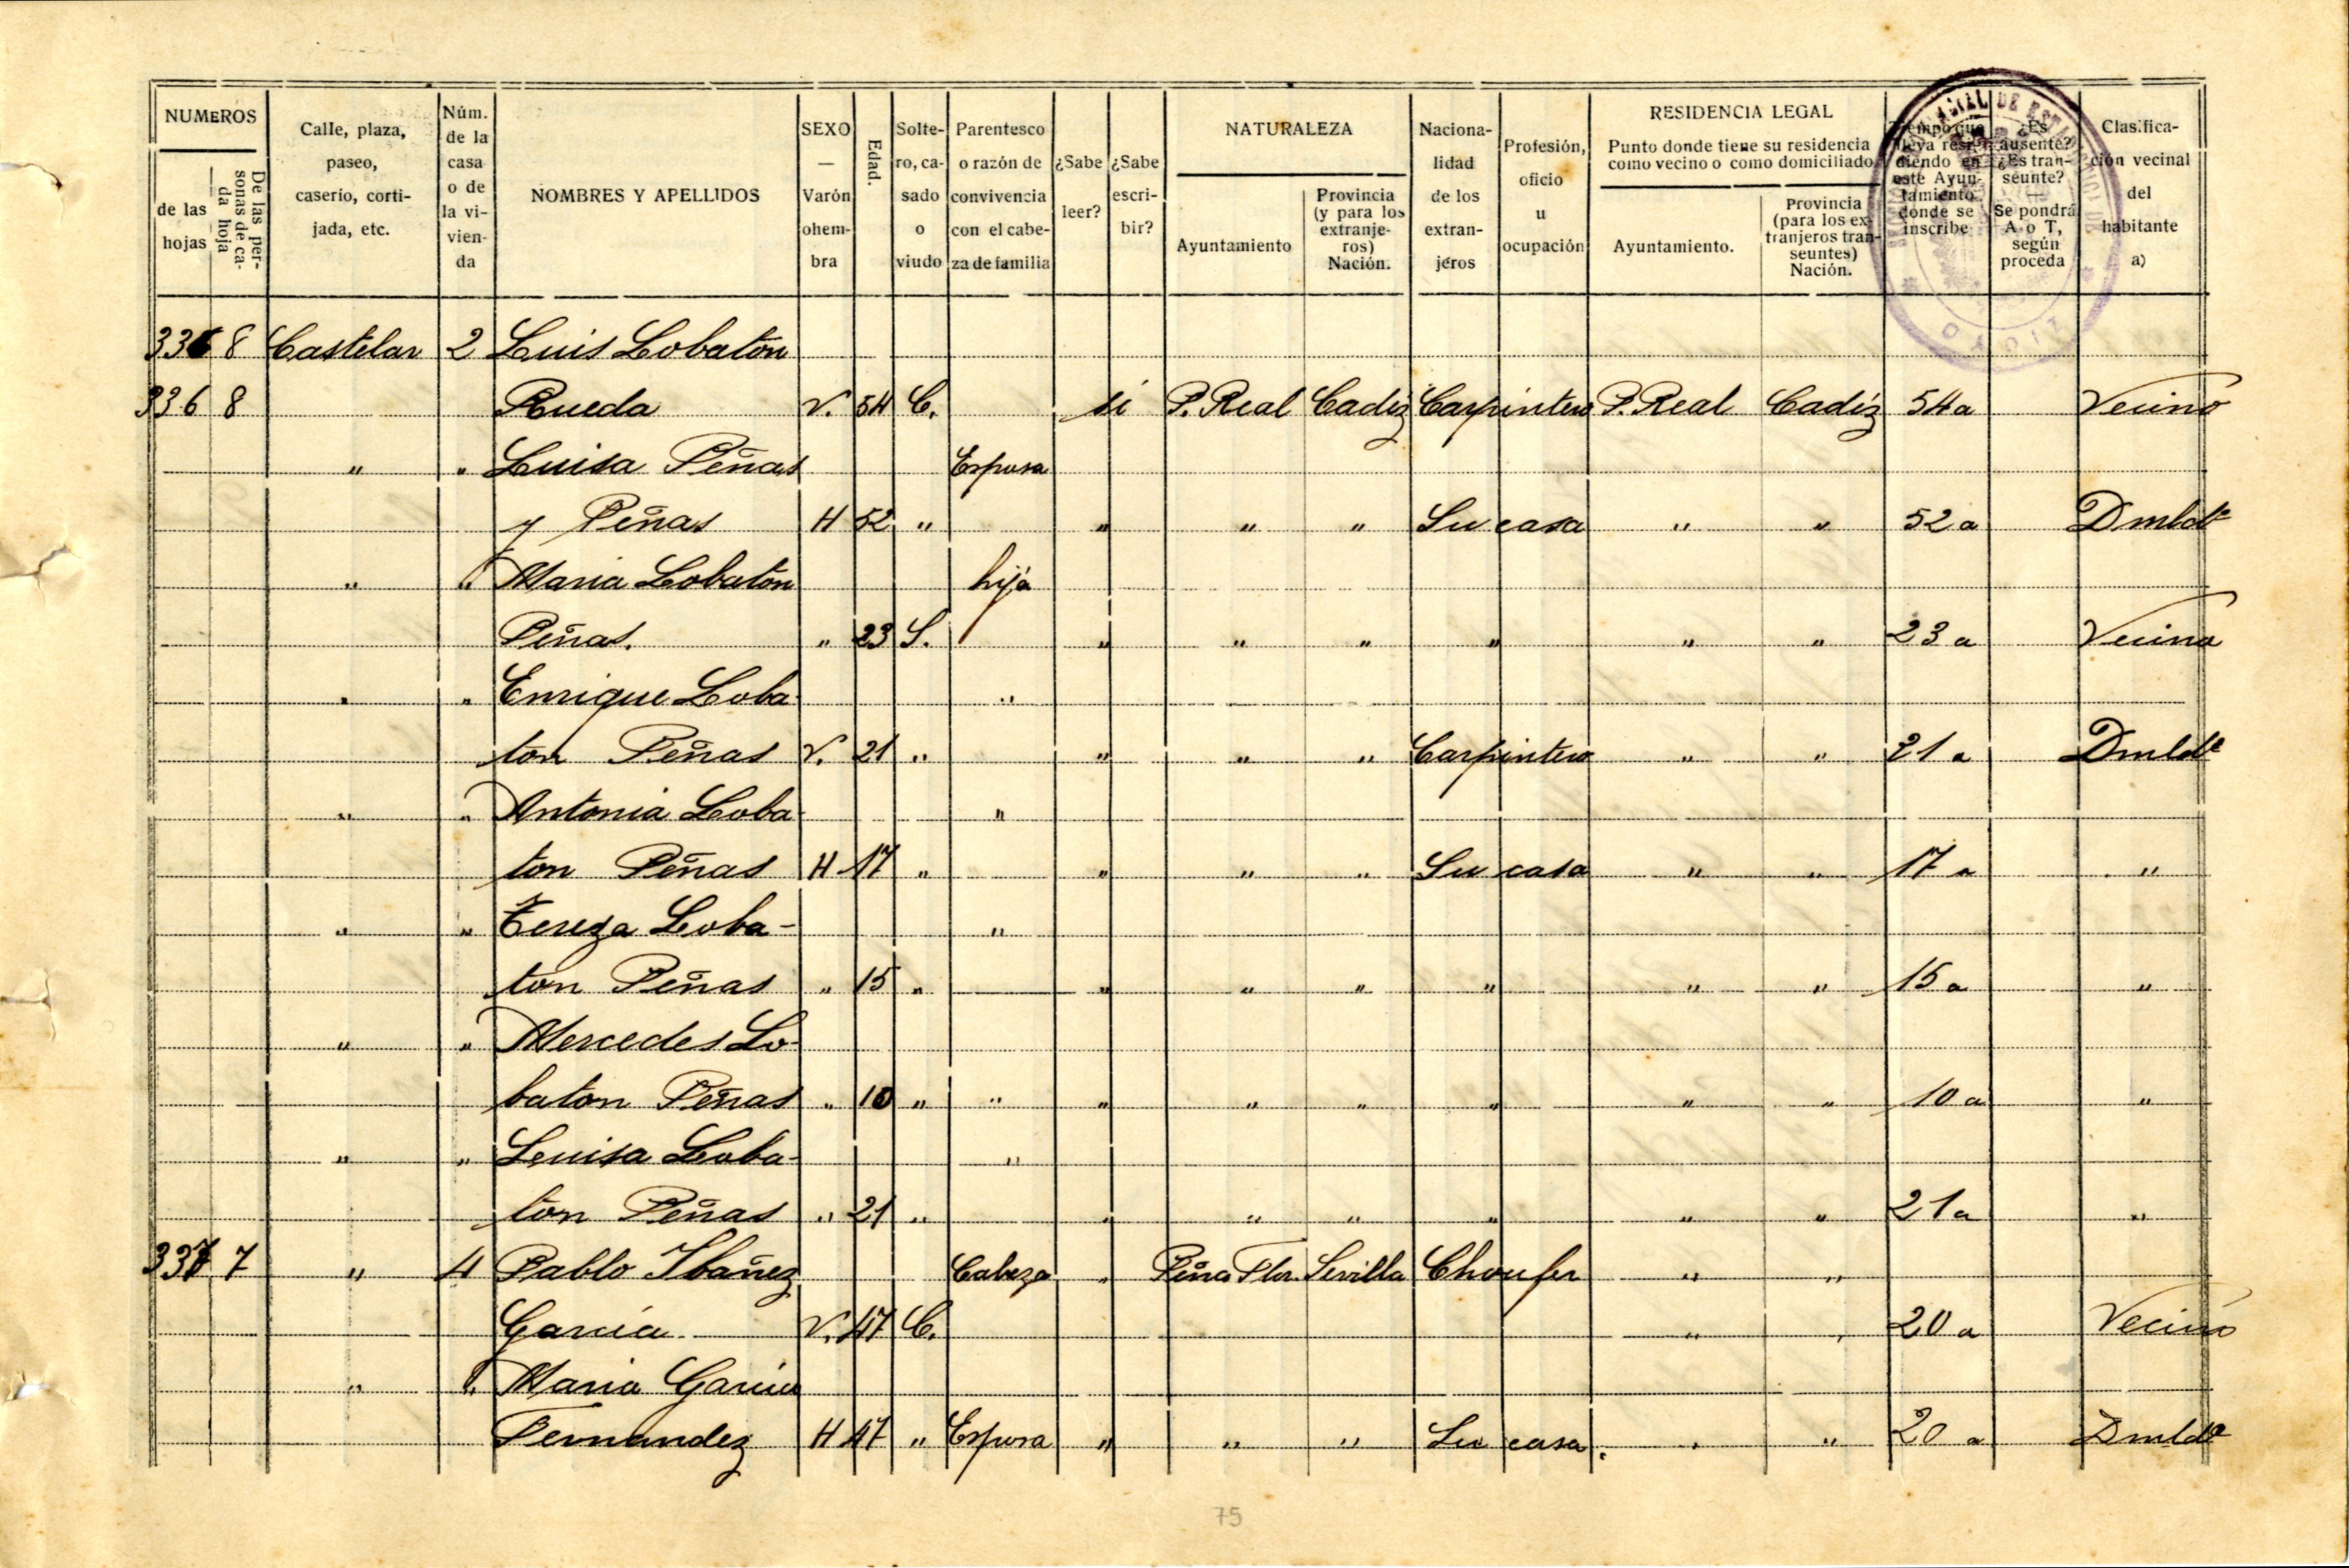 NUMEROS
de las hojas
De las personas de cada hoja
Calle, plaza, paseo, caserío, cortijada, etc.
Núm. de la casa o de la vivienda
NOMBRES Y APELLIDOS
SEXO — Varón ohembra
Edad.
Soltero, casado o viudo
Parentesco o razón de convivencia con el cabeza de familia
¿Sabe leer?
¿Sabe escribir?
NATURALEZA
Ayuntamiento
Provincia (y para los extranjeros) Nación.
Nacionalidad de los extranjeros
Profesión, oficio u ocupación
RESIDENCIA LEGAL
Punto donde tiene su residencia como vecino o como domiciliado
Ayuntamiento.
Provincia (para los extranjeros transeuntes) Nación.
Tiempo que lleva residiendo en este Ayuntamiento donde se inscribe
¿Es ausente? ¿Es transeunte? — Se pondrá A o T, según proceda
Clasificación vecinal del habitante a)
336 8 Castelar 2 Luis Lobatón
336 8 Rueda V. 54 C. si P. Real Cadiz Carpintero P. Real Cadiz 54 a Vecino
" " Luisa Peñas Esposa
y Peñas H 52 " " " " Su casa " " 52 a Dmldº
" " Maria Lobaton hija
Peñas. " 23 S. " " " " " " 23 a Vecina
" " Enrique Loba "
ton Peñas V. 21 " " " " Carpintero " " 21 a Dmldº
" " Antonia Loba- "
ton Peñas H 17 " " " " Su casa " " 17 a "
" " Tereza Loba- "
ton Peñas " 15 " " " " " " " 15 a "
" " Mercedes Lo-
baton Peñas " 10 " " " " " " " " 10 a "
" " Luisa Loba- "
ton Peñas " 21 " " " " " " " 21 a "
337 7 " 4 Pablo Ibañez Cabeza " Peña Flor. Sevilla Choufer " "
Garcia. V. 47 C. " " 20 a Vecino
" " Maria Garcia
Fernandez H 47 " Esposa " " " Su casa. " " 20 a Dmldº
75